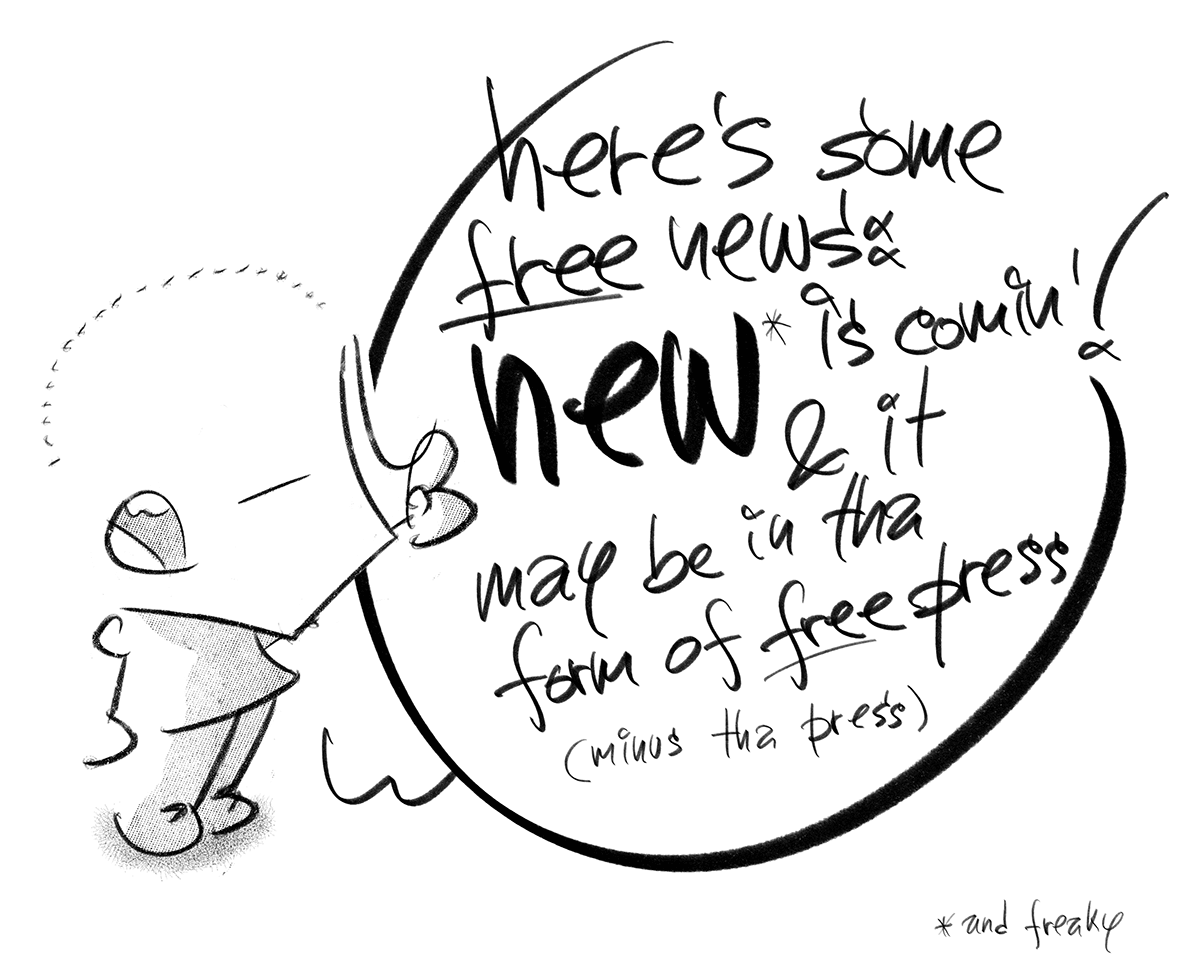 here's some
free news:
new* is comin'!
& it
may be in tha
form of free press
(minus tha press)
*and freaky